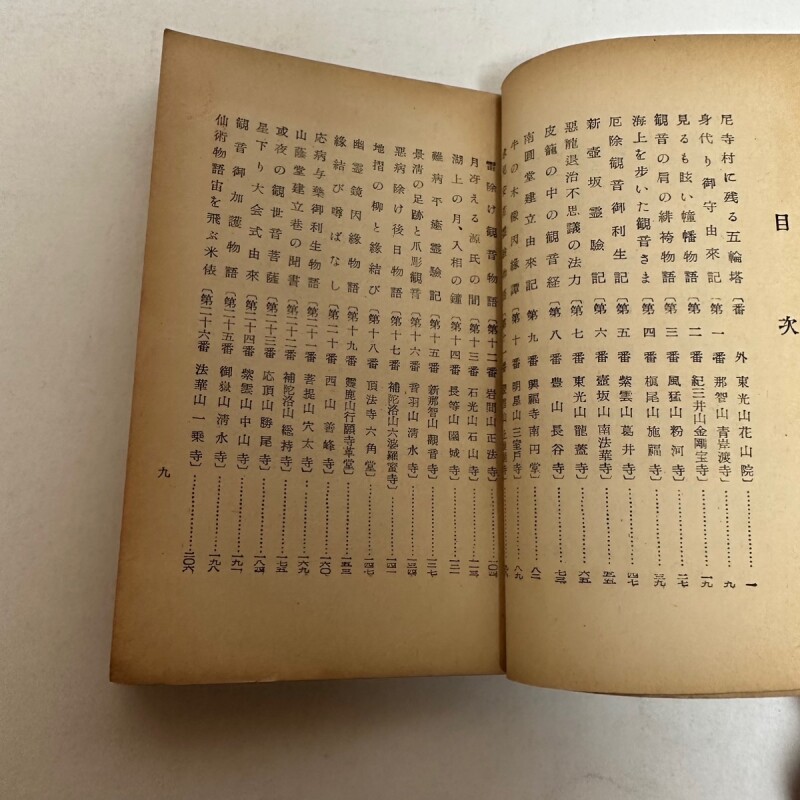 目次
尼寺村に残る五輪塔〔番外 東光山花山院〕……一
身代り御守由来記〔第一番 那智山青岸渡寺〕……九
見るも眩い幢幡物語〔第二番 紀三井山金剛宝寺〕……一九
観音の肩の緋袴物語〔第三番 風猛山粉河寺〕……二七
海上を歩いた観音さま〔第四番 槇尾山施福寺〕……三九
厄除観音御利生記〔第五番 紫雲山葛井寺〕……四七
新壺坂霊験記〔第六番 壺坂山南法華寺〕……五五
悪龍退治不思議の法力〔第七番 東光山龍蓋寺〕……六五
皮籠の中の観音経〔第八番 豊山長谷寺〕……七三
南圓堂建立由来記〔第九番 興福寺南円堂〕……八二
牛の木像因縁譚〔第十番 明星山三室戸寺〕……八九
雷除け観音物語〔第十二番 岩間山正法寺〕……一〇四
月冴える源氏の間〔第十三番 石光山石山寺〕……一一三
湖上の月、入相の鐘〔第十四番 長等山園城寺〕……一二一
難病平癒霊験記〔第十五番 新那智山観音寺〕……一二七
景清の足跡と爪形観音〔第十六番 音羽山清水寺〕……一三四
悪病除け後日物語〔第十七番 補陀洛山六波羅蜜寺〕……一四一
地摺の柳と縁結び〔第十八番 頂法寺六角堂〕……一四七
幽霊鏡因縁物語〔第十九番 霊鹿山行願寺革堂〕……一五三
縁結び噂ばなし〔第二十番 西山善峰寺〕……一六〇
応病与薬御利生物語〔第二十一番 菩提山穴太寺〕……一六九
山蔭堂建立巷の聞書〔第二十二番 補陀洛山総持寺〕……一七五
或夜の観世音菩薩〔第二十三番 応頂山勝尾寺〕……一八四
星下り大会式由来〔第二十四番 紫雲山中山寺〕……一九一
観音御加護物語〔第二十五番 御嶽山清水寺〕……一九八
仙術物語宙を飛ぶ米俵〔第二十六番 法華山一乗寺〕……二〇六
九